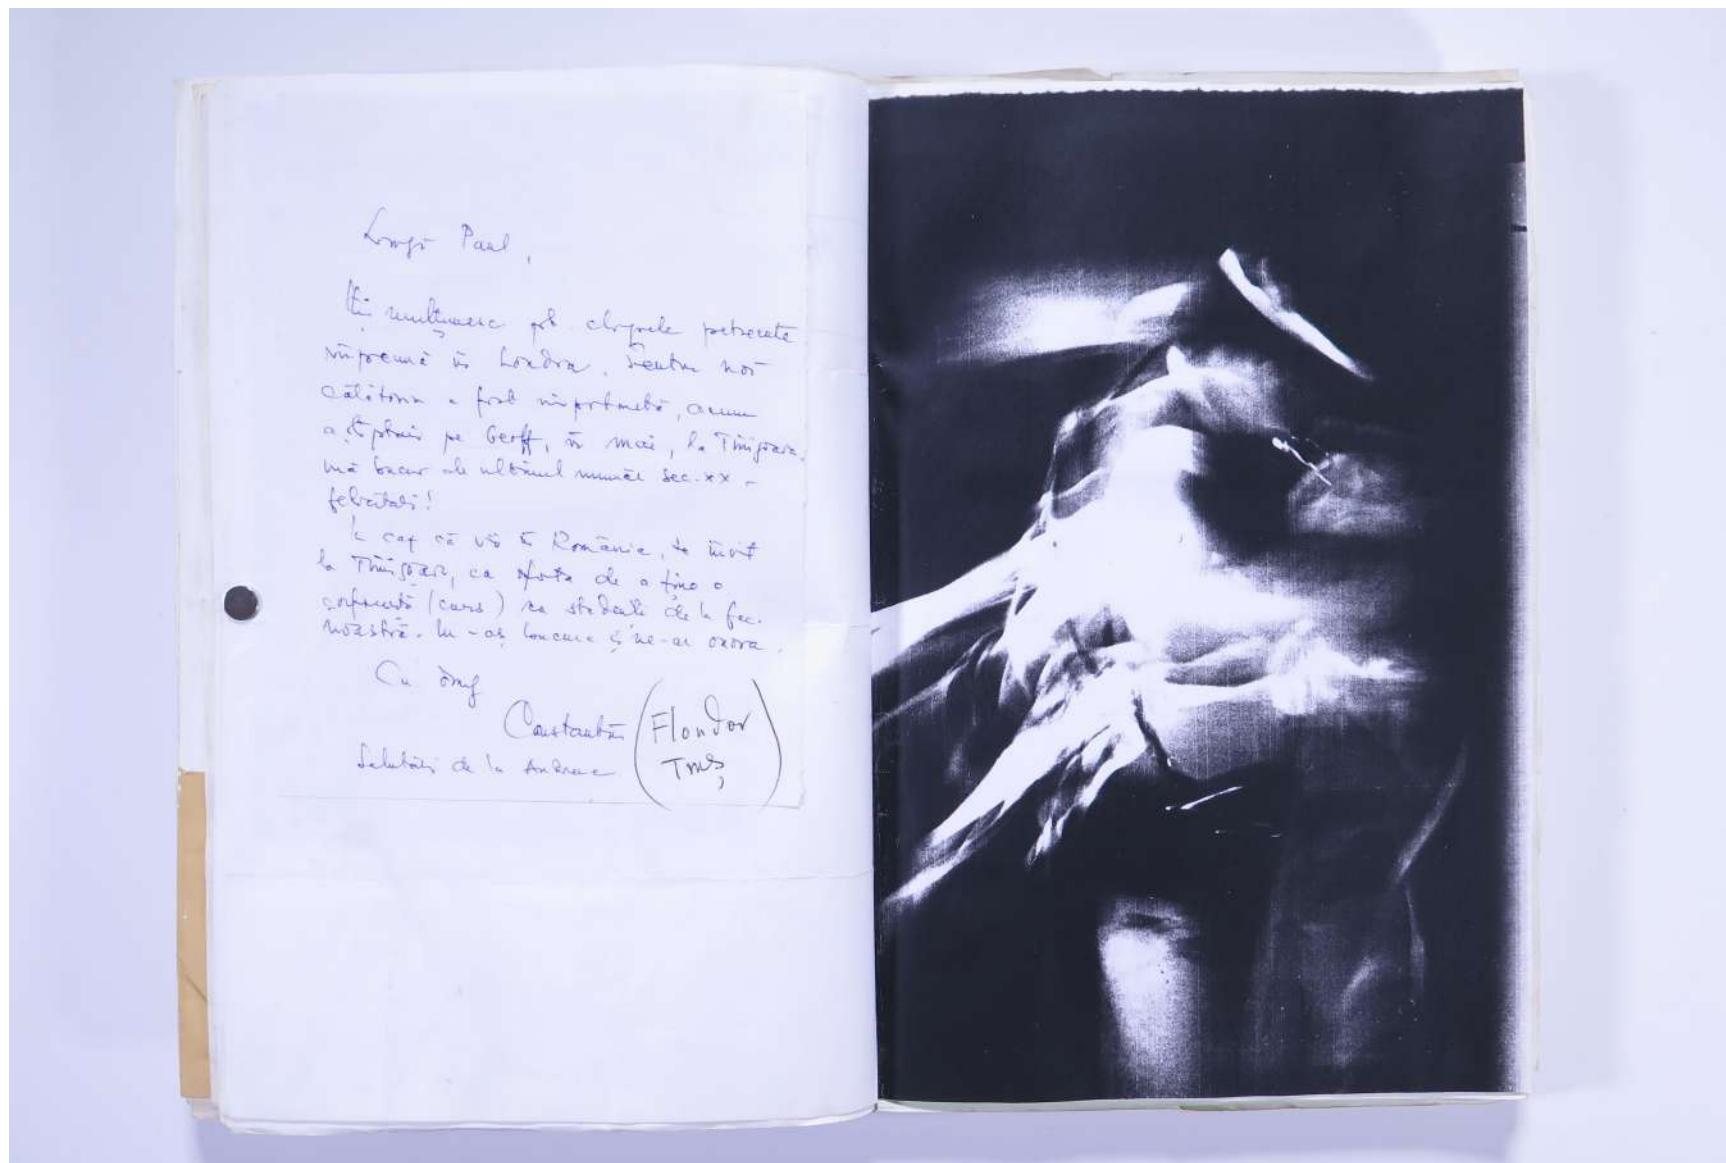 Dragă Paul,
Îți mulțumesc pt clipele petrecute
împreună în Londra. Pentru noi
călătoria a fost importantă, acum
așteptăm pe Geoff, în mai, la Timișoara.
Mă bucur de ultimul număr sec. XX –
felicitări!
În caz că vii în România, te invit
la Timișoara, ca de a ține o
conferință (curs) cu studenți de la fac.
noastră. M-aș bucura și ne-ai onora.
Cu drag
Constantin (Flondor
Salutări de la Andreea Tmș)